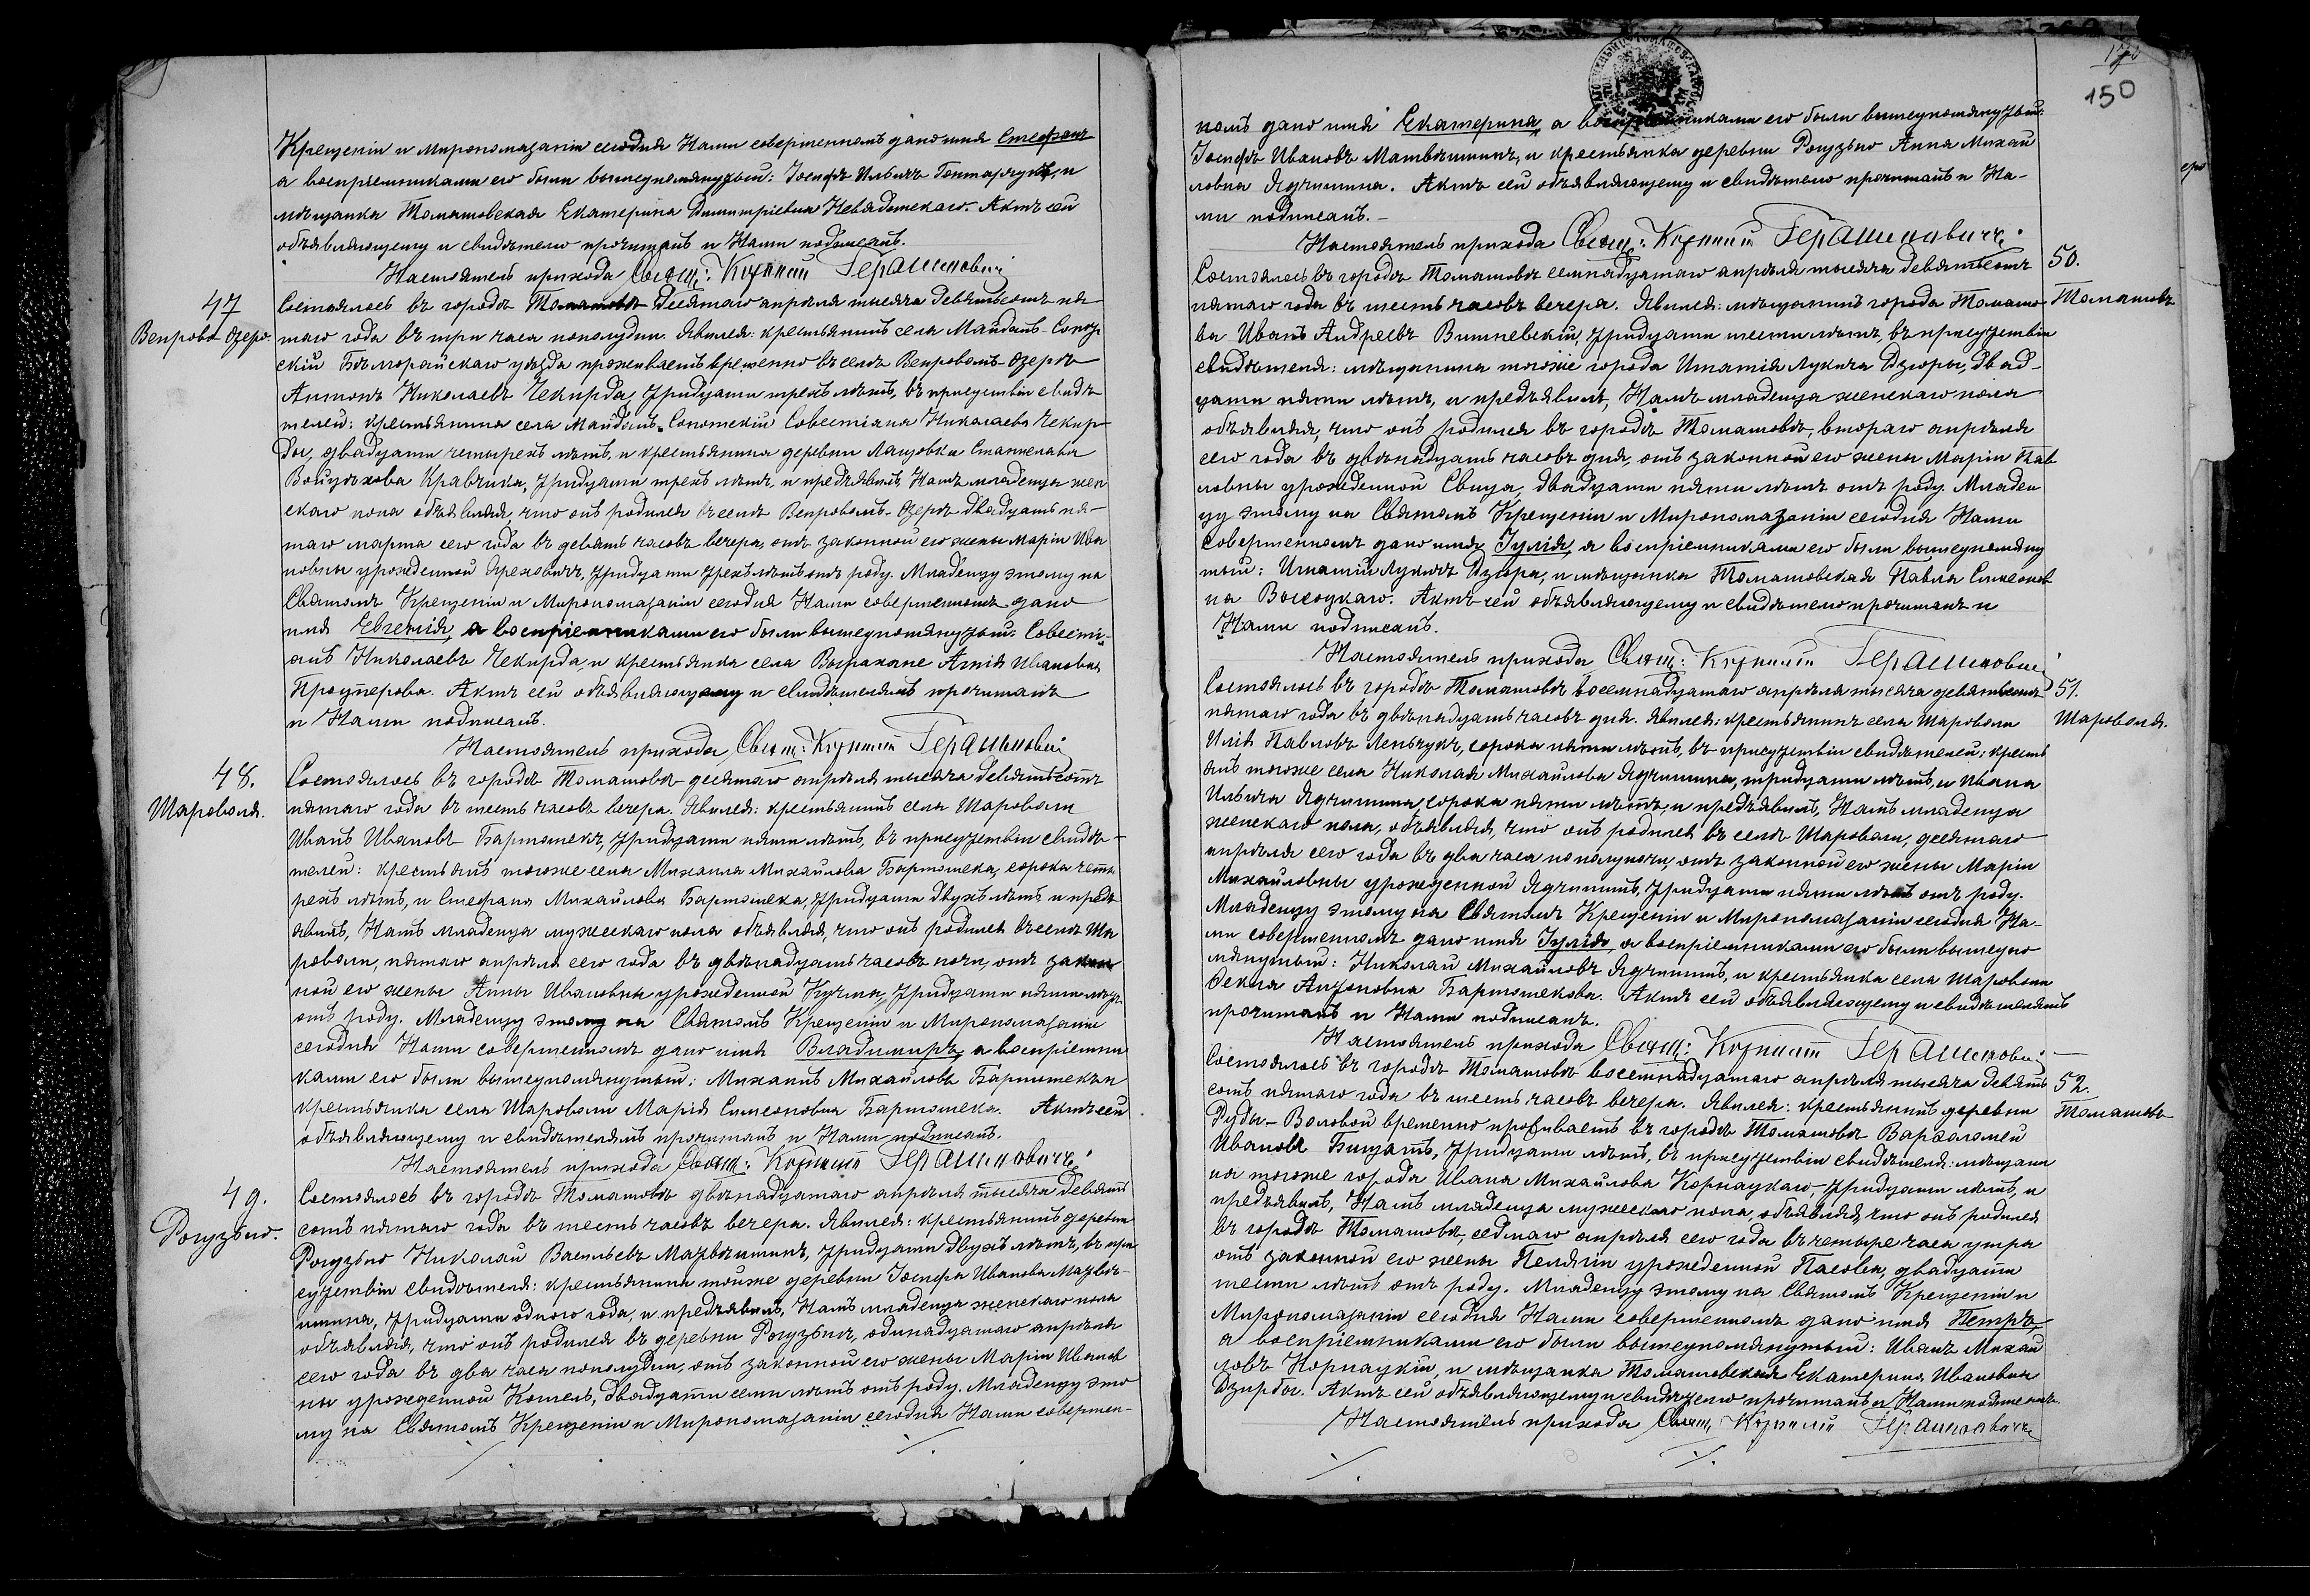 Крещеніи и миропомазаніи сегодня Нами совершенномъ дано имя Стефанъ
а воспріемниками его были вышеупомянутый: Іосифъ Ильичъ и
мѣщанка Томашовская Екатерина Димитріевна Невядомскаго. Актъ сей
объявляющему и свидѣтелю прочитанъ и Нами подписанъ.
Настоятель прихода Свящ: Корнилій Герасимовичъ
47
Венрово Озеро.
Состоялось въ городѣ Томашовѣ десятаго апрѣля тысяча девятьсотъ пя-
таго года въ три часа пополудни. Явился: крестьянинъ села Майданъ-Сопот-
скій Бѣлгорайскаго уѣзда проживаетъ временно въ селѣ Венровомъ-Озерѣ
Антонъ Николаевъ Чекирда, тридцати трехъ лѣтъ, въ присутствіи свидѣ-
телей: крестьянина села Майданъ-Сопотскій Совестіяна Николаева Чекир-
ды, двадцати четырехъ лѣтъ, и крестьянина деревни Лащовка Станислава
Войцѣхова Кравчика, тридцати трехъ лѣтъ, и предъявилъ Намъ младенца жен
скаго пола объявляя, что онъ родился въ селѣ Венровомъ-Озерѣ двадцать пя-
таго марта сего года въ девять часовъ вечера, отъ законной его жены Маріи Ива
новны урожденной Ореховичъ, тридцати трехъ лѣтъ отъ роду. Младенцу этому на
Святомъ Крещеніи и Миропомазаніи сегодня Нами совершенномъ дано
имя Евгенія, а воспріемниками его были вышеупомянутый: Совесті-
анъ Николаевъ Чекирда, и крестьянка села Анна Ивановна
Актъ сей объявляющему и свидѣтелямъ прочитанъ
и Нами подписанъ.
Настоятель прихода, Свящ: Корнилій Герасимовичъ
48.
Шаровола.
Состоялось въ городѣ Томашовѣ десятаго апрѣля тысяча девятьсотъ
пятаго года въ шесть часовъ вечера. Явился: крестьянинъ села Шароволи
Иванъ Ивановъ Бартошекъ, тридцати пяти лѣтъ, въ присутствіи свидѣ-
телей: крестьянъ тогоже села Михаила Михайлова Бартошека, сорока четы
рехъ лѣтъ, и Стефана Михайлова Бартошека, тридцати двухъ лѣтъ и предъ
явилъ, Намъ младенца мужескаго пола объявляя, что онъ родился въ селѣ Ша
роволи, пятаго апрѣля сего года въ двѣнадцать часовъ ночи, отъ закон
ной его жены Анны Ивановны урожденной Кучмы, тридцати пяти лѣтъ
отъ роду. Младенцу этому на Святомъ Крещеніи и Миропомазаніи
сегодня Нами совершенномъ дано имя Владимиръ, а воспріемни
ками его были вышеупомянутый: Михаилъ Михайловъ Бартошекъ и
крестьянка села Шароволи Марія Симеоновна Бартошека. Актъ сей
объявляющему и свидѣтелямъ прочитанъ и Нами подписанъ.
Настоятель прихода Свящ: Корнилій Герасимовичъ
49.
Рогузьно.
Состоялось въ городѣ Томашовѣ двѣнадцатаго апрѣля тысяча девять
сотъ пятаго года въ шесть часовъ вечера. Явился: крестьянинъ деревни
Рогузьно Николай Васильевъ Матвѣишинъ, тридцати двухъ лѣтъ, въ при
сутствіи свидѣтеля: крестьянина тойже деревни Іосифа Иванова Матвѣ-
ишина, тридцати одного года, и предъявилъ, Намъ младенца женскаго пола
объявляя, что онъ родился въ деревни Рогузьнѣ, одинадцатаго апрѣля
сего года въ два часа пополудни, отъ законной его жены Маріи Иванов
ны урожденной Комель, двадцати семи лѣтъ отъ роду. Младенцу это
му на Святомъ Крещеніи и Миропомазаніи сегодня Нами совершен-
150
номъ дано имя Екатерина, а воспріемниками его были вышеупомянутый:
Іосифъ Ивановъ Матвѣишинъ, и крестьянка деревни Рогузьно Анна Михай
ловна Ядчишина. Актъ сей объявляющему и свидѣтелю прочитанъ и На-
ми подписанъ.-
Настоятель прихода Свящ: Корнилій Герасимовичъ
50.
Томашовъ
Состоялось въ городѣ Томашовѣ семнадцатаго апрѣля тысяча девятьсотъ
пятаго года въ шесть часовъ вечера. Явился: мѣщанинъ города Томашо-
ва Иванъ Андреевъ Вишневскій, тридцати шести лѣтъ, въ присутствіи
свидѣтеля: мѣщанина тогоже города Игнатія Лукича Дзюры, двад-
цати пяти лѣтъ, и предъявилъ, Намъ младенца женскаго пола
объявляя, что онъ родился въ городѣ Томашовѣ, втораго апрѣля
сего года въ двѣнадцать часовъ дня, отъ законной его жены Маріи Пав
ловны урожденной Свища, двадцати пяти лѣтъ отъ роду. Младен
цу этому на Святомъ Крещеніи и Миропомазаніи сегодня Нами
совершенномъ дано имя Іулія, а воспріемниками его были вышеупомяну
тый: Игнатій Лукичъ Дзюра, и мѣщанка Томашовская Павла Симеонов
на Высоцкаго. Актъ сей объявляющему и свидѣтелю прочитанъ и
Нами подписанъ.
Настоятель прихода Свящ: Корнилій Герасимовичъ
51.
Шаровола.
Состоялось въ городѣ Томашовѣ восемнадцатаго апрѣля тысяча девятьсотъ
пятаго года въ двѣнадцать часовъ дня. Явился: крестьянинъ села Шароволи
Илія Павловъ Леньчукъ, сорока пяти лѣтъ, въ присутствіи свидѣтелей: кресть
янъ тогоже села Николая Михайлова Ядчишина, тридцати лѣтъ, и Ивана
Ильича Ядчишина, сорока пяти лѣтъ, и предъявилъ, Намъ младенца
женскаго пола, объявляя, что онъ родился въ селѣ Шароволи, десятаго
апрѣля сего года въ два часа пополуночи, отъ законной его жены Маріи
Михайловны урожденной Ядчишинъ, тридцати пяти лѣтъ отъ роду.
Младенцу этому на Святомъ Крещеніи и Миропомазаніи сегодня На-
ми совершенномъ дано имя Іулія, а воспріемниками его были вышеупо
мянутый: Николай Михайловъ Ядчишинъ, и крестьянка села Шароволи
Ѳекла Антоновна Бартошекова. Актъ сей объявляющему и свидѣтелямъ
прочитанъ и Нами подписанъ.
Настоятель прихода Свящ: Корнилій Герасимовичъ
52.
Томашовъ
Состоялось въ городѣ Томашовѣ восемнадцатаго апрѣля тысяча девять
сотъ пятаго года въ шесть часовъ вечера. Явился: крестьянинъ деревни
Руды-Воловой временно проживаетъ въ городѣ Томашовѣ Варѳоломей
Ивановъ тридцати лѣтъ, въ присутствіи свидѣтеля: мѣщани
на тогоже города Ивана Михайлова Корнацкаго, тридцати лѣтъ, и
предъявилъ, Намъ младенца мужескаго пола, объявляя, что онъ родился
въ городѣ Томашовѣ, седмаго апрѣля сего года въ четыре часа утра
отъ законной его жены Пелагіи урожденной Пасовы, двадцати
шести лѣтъ отъ роду. Младенцу этому на Святомъ Крещеніи и
Миропомазаніи сегодня Нами совершенномъ дано имя Петръ,
а воспріемниками его были вышеупомянутый: Иванъ Михай
ловъ Корнацкій, и мѣщанка Томашовская Екатерина Ивановна
Дзирбы. Актъ сей объявляющему и свидѣтелю прочитанъ и Нами подписанъ.
Настоятель прихода Свящ, Корнилій Герасимовичъ